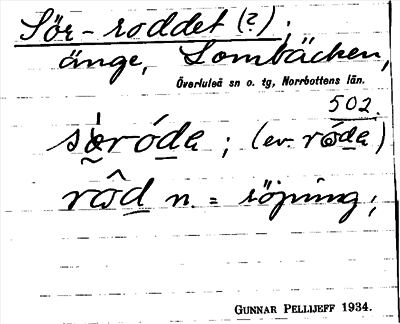 Sör-roddet (?);
änge, Lombäcken,
Överluleå sn o. tg, Norrbottens län.
502.
sǝróda; (ev. róda)
rôd n. = röjning;
GUNNAR PELLIJEFF 1934.